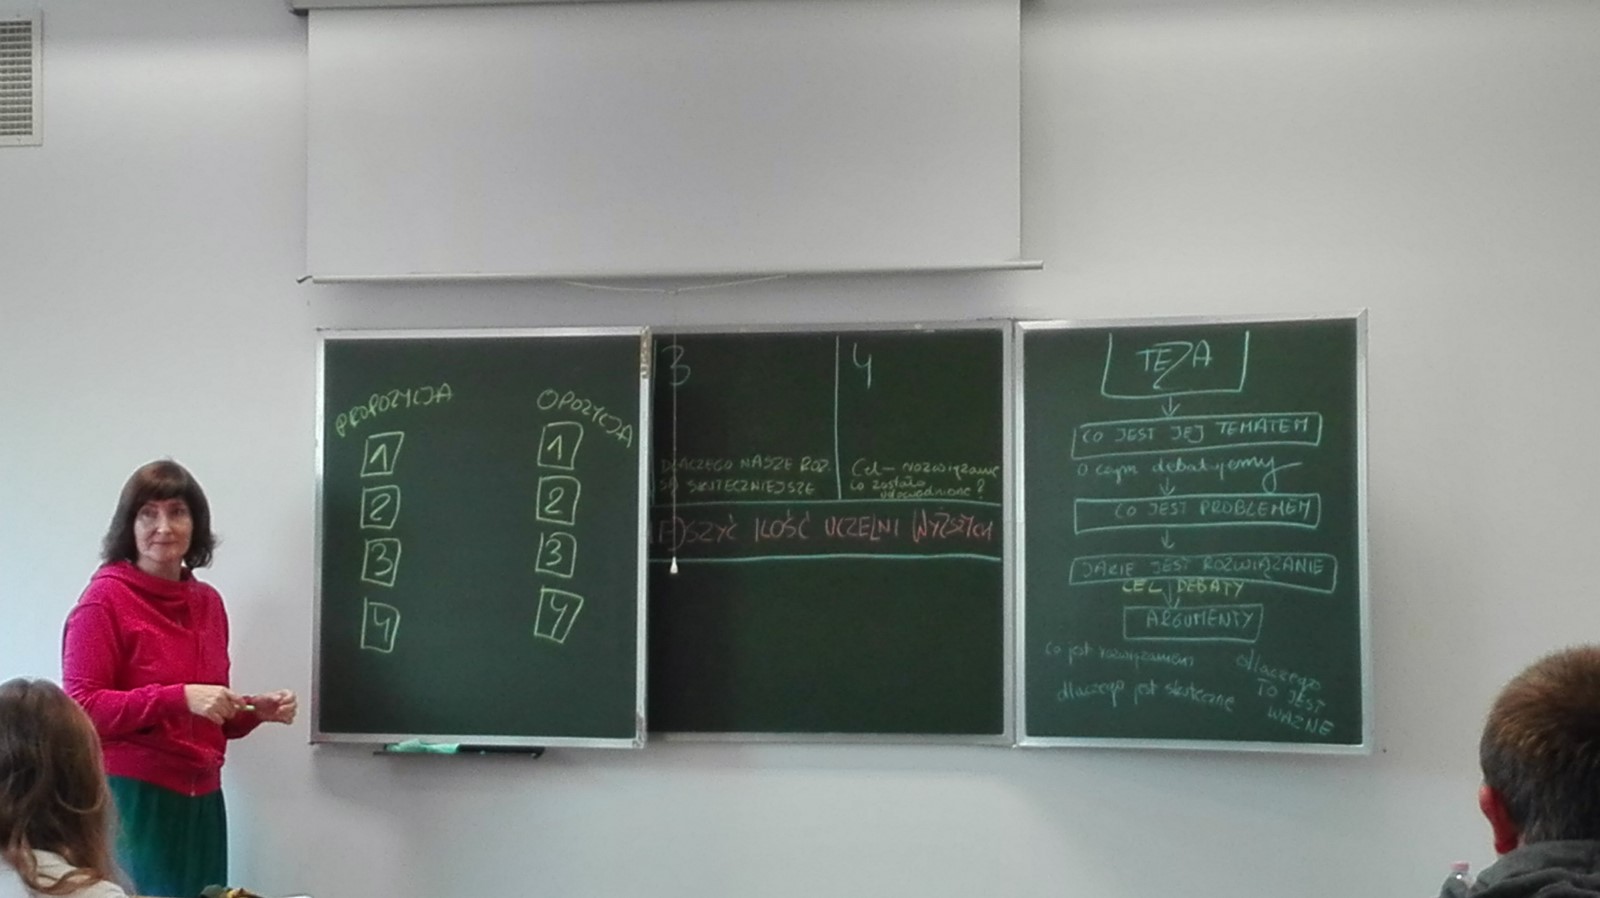 PROPOZYCJA
1
2
3
4
OPOZYCJA
1
2
3
4
3
DLACZEGO NASZE ROZ.
SĄ SKUTECZNIEJSZE
4
Cel – rozwiązanie
co zostało
udowodnione?
EJSZYĆ ILOŚĆ UCZELNI WYŻSZYCH
TEZA
CO JEST JEJ TEMATEM
O czym debatujemy
CO JEST PROBLEMEM
JAKIE JEST ROZWIĄZANIE
CEL DEBATY
ARGUMENTY
Co jest rozwiązaniem
dlaczego jest skuteczne
dlaczego
TO JEST
WAŻNE